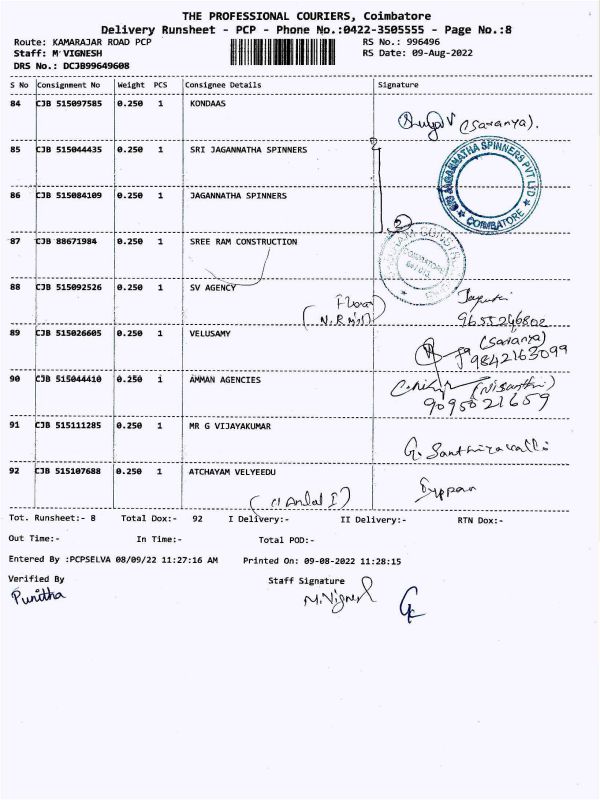 THE PROFESSIONAL COURIERS, Coimbatore
Delivery Runsheet - PCP - Phone No.:0422-3505555 - Page No.:8
Route: KAMARAJAR ROAD PCP RS No.: 996496
Staff: M VIGNESH RS Date: 09-Aug-2022
DRS No.: DCJB99649608
S No Consignment No Weight PCS Consignee Details Signature
84 CJB 515097585 0.250 1 KONDAAS
(Saranya).
85 CJB 515044435 0.250 1 SRI JAGANNATHA SPINNERS
SRI JAGANNATHA SPINNERS PVT LTD
COIMBATORE
86 CJB 515084109 0.250 1 JAGANNATHA SPINNERS
2
87 CJB 88671984 0.250 1 SREE RAM CONSTRUCTION
88 CJB 515092526 0.250 1 SV AGENCY
9655246802
89 CJB 515026605 0.250 1 VELUSAMY
(Saranya)
9842163099
90 CJB 515044410 0.250 1 AMMAN AGENCIES
9095021659
91 CJB 515111285 0.250 1 MR G VIJAYAKUMAR
92 CJB 515107688 0.250 1 ATCHAYAM VELYEEDU
Tot. Runsheet:- 8 Total Dox:- 92 I Delivery:- II Delivery:- RTN Dox:-
Out Time:- In Time:- Total POD:-
Entered By :PCPSELVA 08/09/22 11:27:16 AM Printed On: 09-08-2022 11:28:15
Verified By Staff Signature
Punitha M.Vignesh